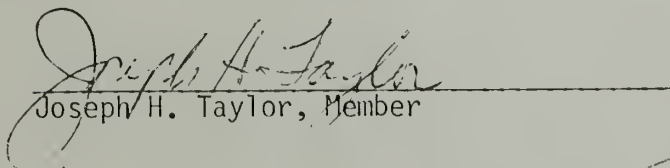 Joseph H. Taylor
Joseph H. Taylor, Member